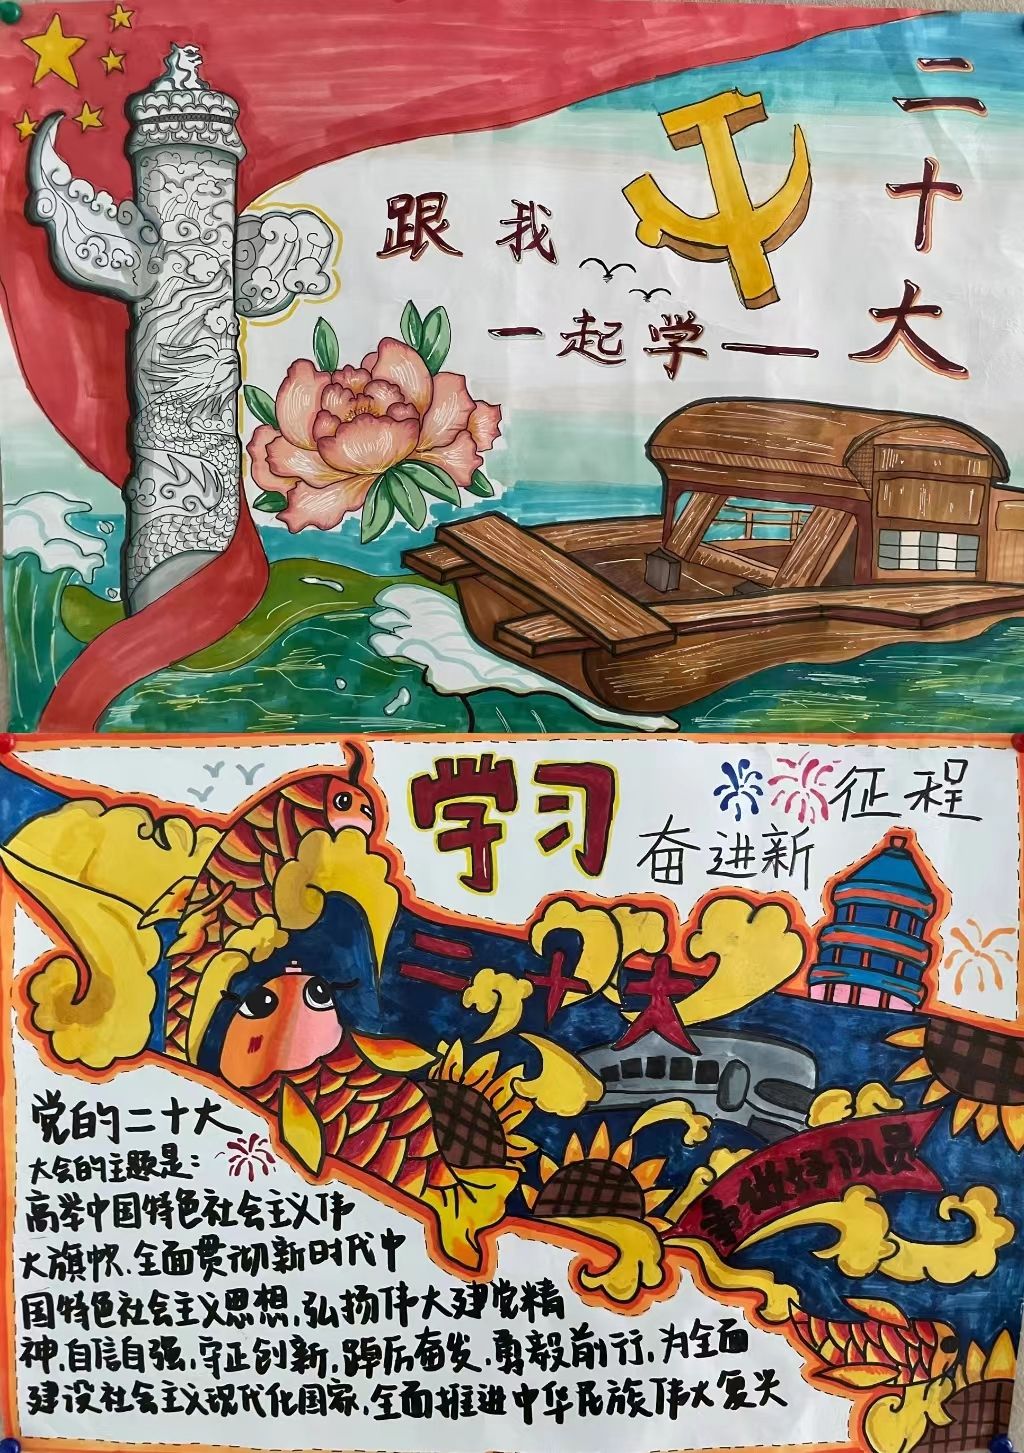 跟我
一起学——
二十大
学习
奋进新
征程
二十大
争做好队员
党的二十大
大会的主题是：
高举中国特色社会主义伟
大旗帜、全面贯彻新时代中
国特色社会主义思想，弘扬伟大建党精
神，自信自强，守正创新，踔厉奋发，勇毅前行，为全面
建设社会主义现代化国家，全面推进中华民族伟大复兴